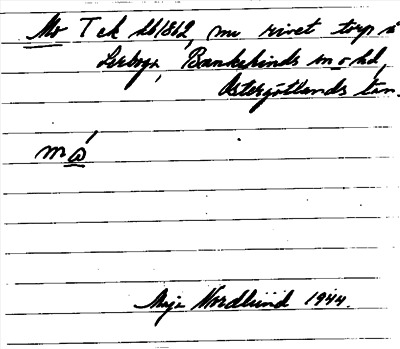 Mo T ek hb 1862, nu rivet torp å
Lerboga, Bankekinds sn o hd,
Östergötlands län.
mó
Maja Nordlund 1944.